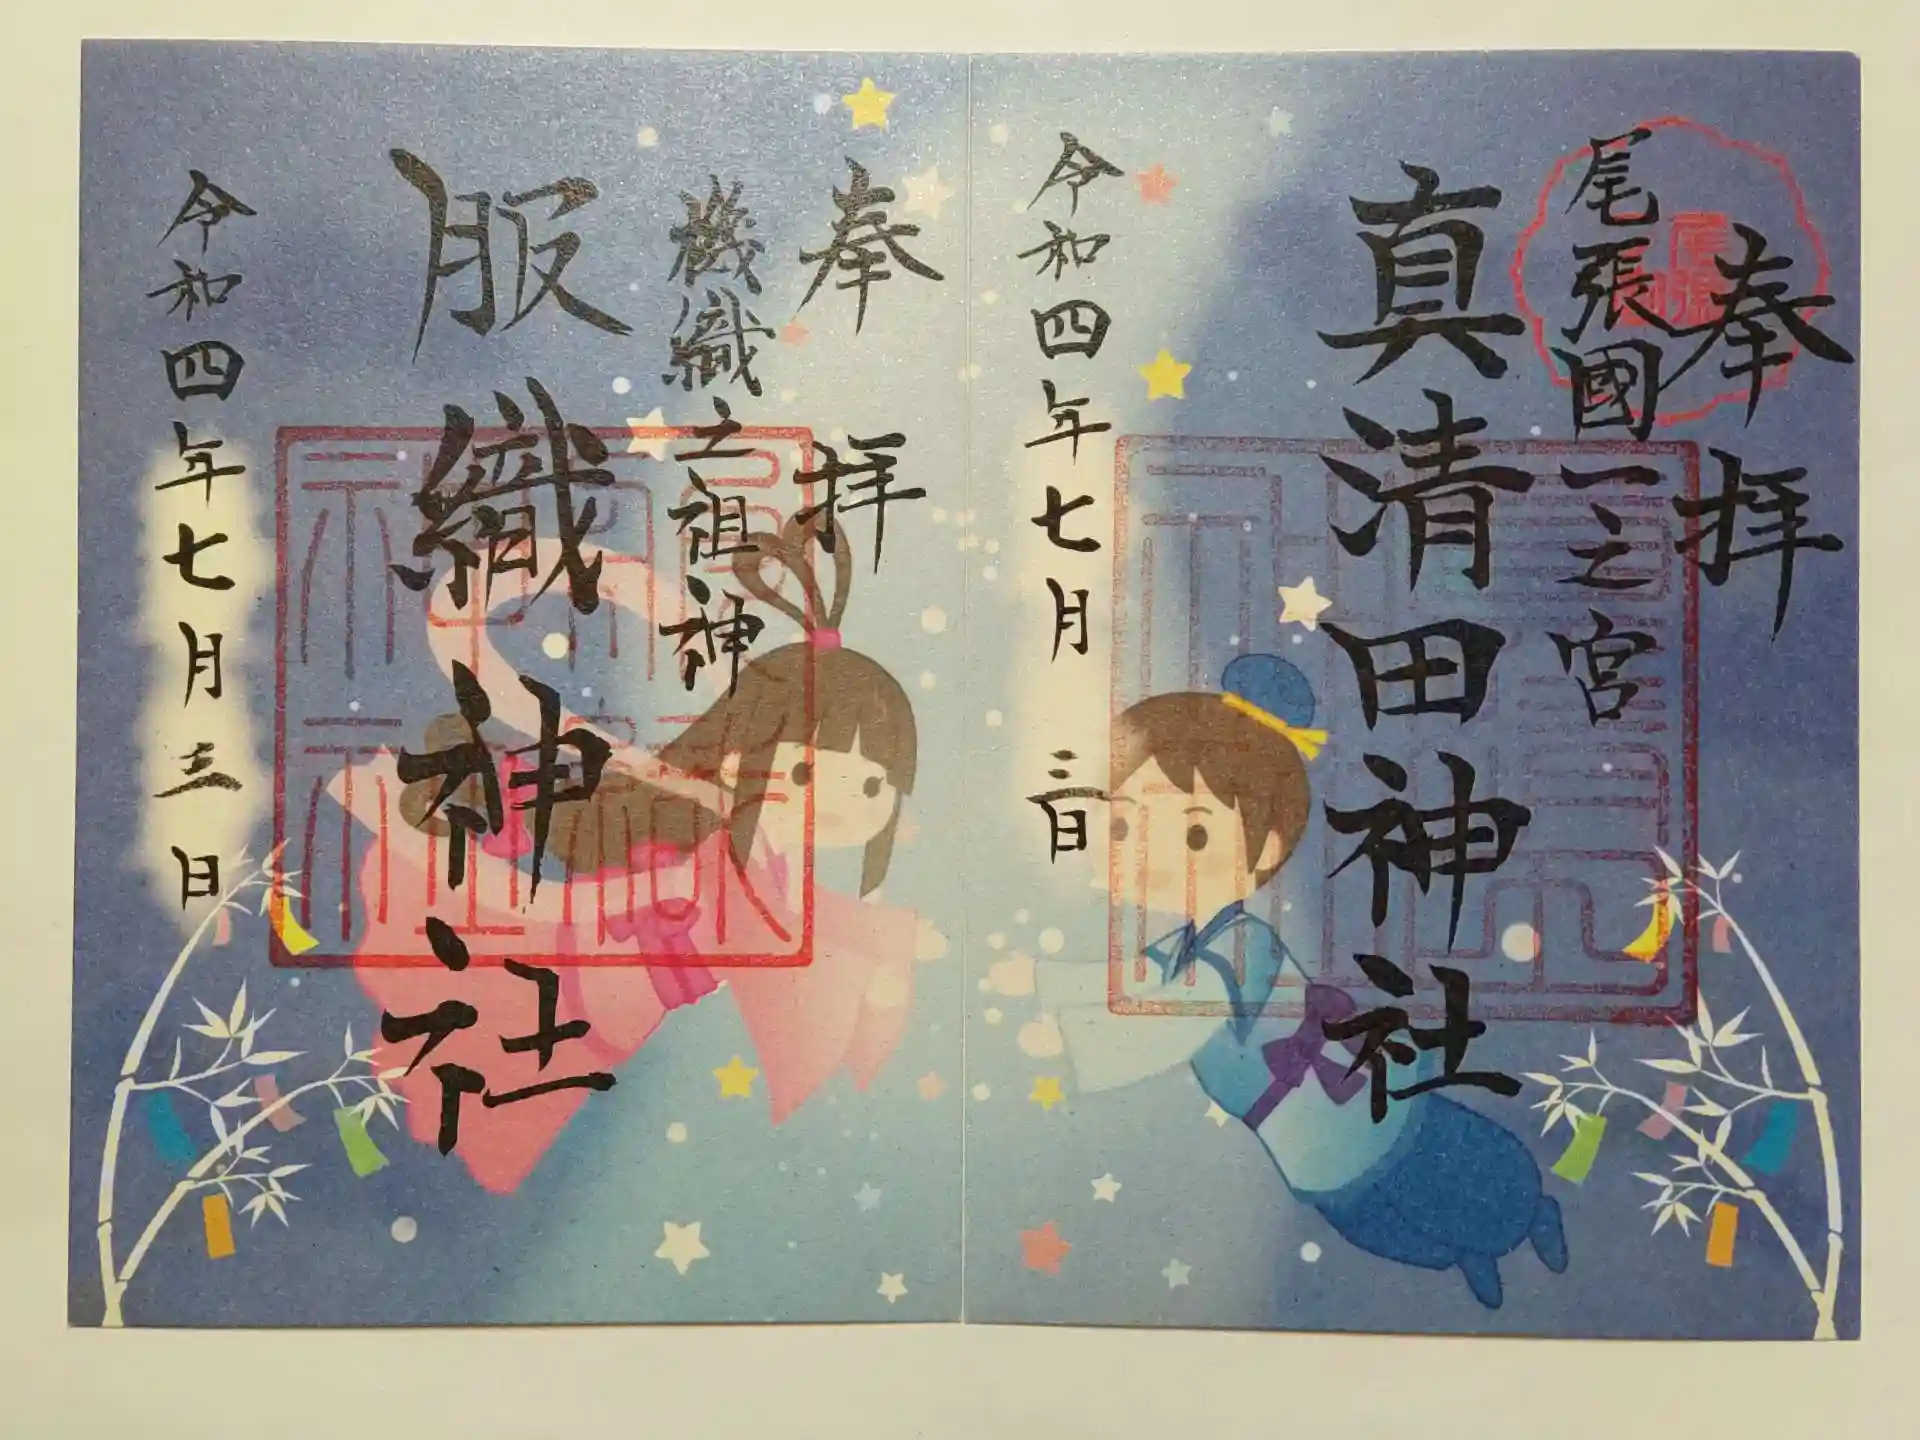 奉拝
尾張國一之宮
真清田神社
令和四年七月三日
奉拝
機織之祖神
服織神社
令和四年七月三日